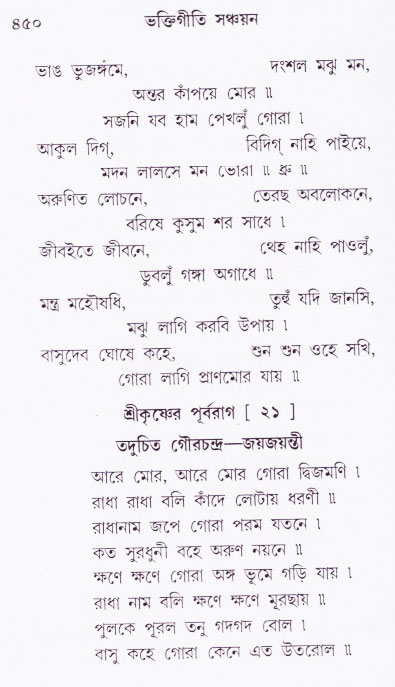 ৪৫০ ভক্তিগীতি সঞ্চয়ন
ভাঙ ভুজঙ্গমে, দংশল মঝু মন,
অন্তর কাঁপয়ে মোর ॥
সজনি যব হাম পেখলুঁ গোরা ।
আকুল দিগ্, বিদিগ্ নাহি পাইয়ে,
মদন লালসে মন ভোরা ॥ ধ্রু ॥
অরুণিত লোচনে, তেরছ অবলোকনে,
বরিষে কুসুম শর সাধে ।
জীবইতে জীবনে, থেহ নাহি পাওলুঁ,
ডুবলুঁ গঙ্গা অগাধে ॥
মন্ত্র মহৌষধি, তুহুঁ যদি জানসি,
মঝু লাগি করবি উপায় ।
বাসুদেব ঘোষে কহে, শুন শুন ওহে সখি,
গোরা লাগি প্রাণমোর যায় ॥
শ্রীকৃষ্ণের পূর্বরাগ [ ২১ ]
তদুচিত গৌরচন্দ্র—জয়জয়ন্তী
আরে মোর, আরে মোর গোরা দ্বিজমণি ।
রাধা রাধা বলি কাঁদে লোটায় ধরণী ॥
রাধানাম জপে গোরা পরম যতনে ।
কত সুরধুনী বহে অরুণ নয়নে ॥
ক্ষণে ক্ষণে গোরা অঙ্গ ভূমে গড়ি যায় ।
রাধা নাম বলি ক্ষণে ক্ষণে মূরছায় ॥
পুলকে পূরল তনু গদগদ বোল ।
বাসু কহে গোরা কেনে এত উতরোল ॥